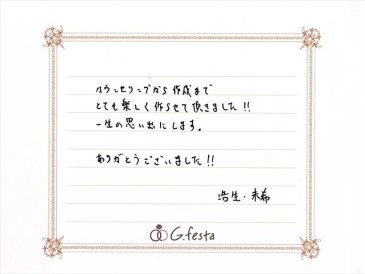 カウンセリングから作成まで
とても楽しく作らせて頂きました!!
一生の思い出にします。
ありがとうございました!!
浩生・未希
G.festa